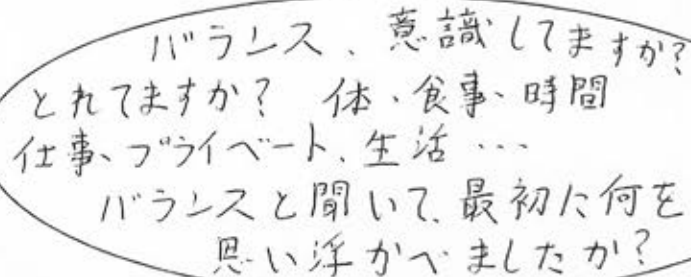 バランス、意識してますか?
とれてますか? 体、食事、時間
仕事、プライベート、生活…
バランスと聞いて、最初に何を
思い浮かべましたか?